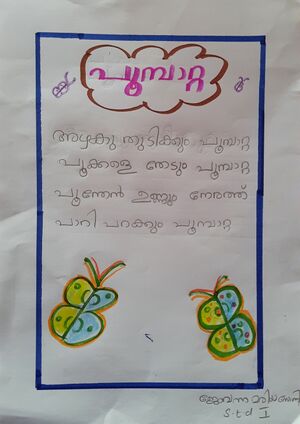 പൂമ്പാറ്റ
അഴകു തുടിക്കും പൂമ്പാറ്റ
പൂക്കളെ തേടും പൂമ്പാറ്റ
പൂന്തേൻ ഉണ്ണും നേരത്ത്
പാറി പറക്കും പൂമ്പാറ്റ
Std I